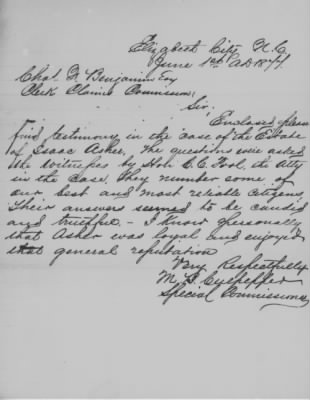 Elizabeth City N.C.
June 1st A.D. 1877.
Chas. F. Benjamin Esq
Clerk Claims Commission
Sir
Enclosed please
find testimony in the case of the Estate
of Isaac Asher. The questions were asked
the witnesses by Hon C. C. Pool, the Atty
in the case. They number some of
our best and most reliable citizens.
Their answers seemed to be candid
and truthful. - I know personally
that Asher was loyal and enjoyed
that general reputation
Very Respectfully
M. B. Culpepper
Special Commissioner